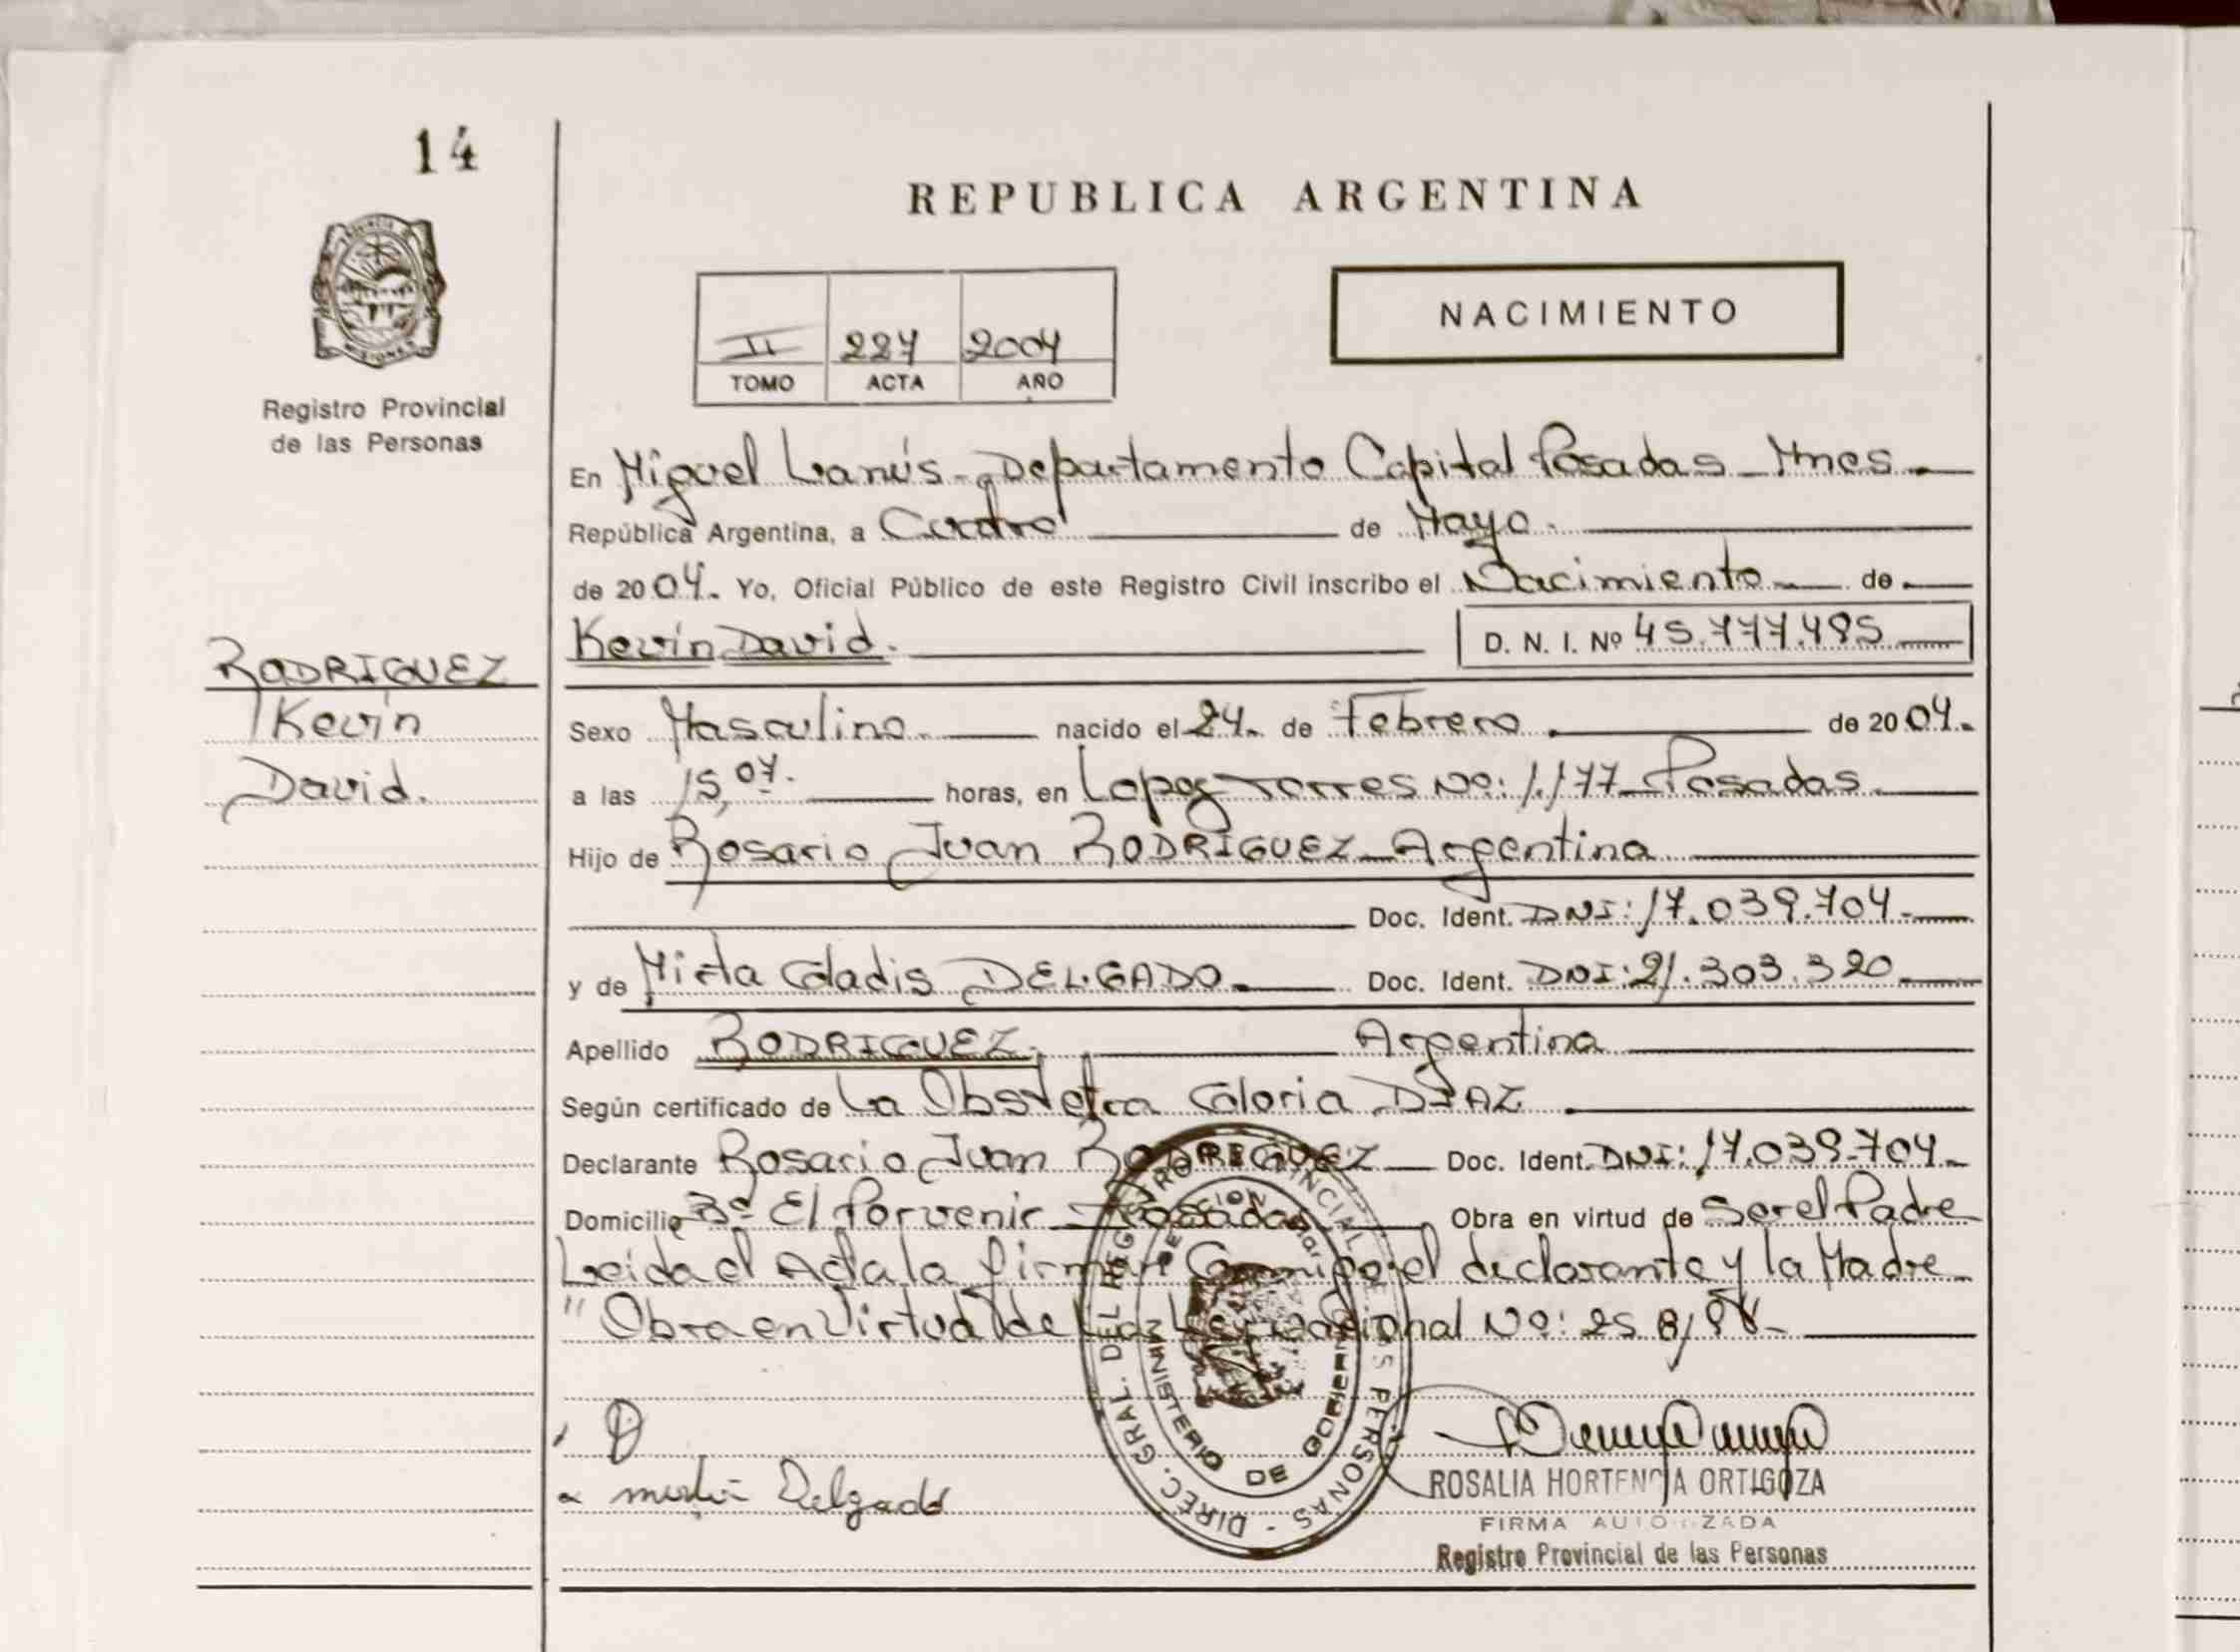 14
REPUBLICA ARGENTINA
NACIMIENTO
II 227 2004
TOMO ACTA AÑO
Registro Provincial
de las Personas
En Miguel Lanús - Departamento Capital Posadas - Mnes.
República Argentina, a Cuatro de Mayo.
de 2004. Yo, Oficial Público de este Registro Civil inscribo el Nacimiento de
Kevin David. D. N. I. Nº 45.777.495
RODRIGUEZ
Kevin
David.
Sexo Masculino. nacido el 24. de Febrero de 2004.
a las 15,07. horas, en Lopez Torres No: 1.177 - Posadas.
Hijo de Rosario Juan RODRIGUEZ - Argentina
Doc. Ident. DNI: 17.039.704.
y de Mirta Gladis DELGADO. Doc. Ident. DNI: 21.303.320
Apellido RODRIGUEZ. Argentina
Según certificado de La Obstetra Gloria DIAZ
Declarante Rosario Juan RODRIGUEZ Doc. Ident. DNI: 17.039.704.
Domicilio Bº El Porvenir - Posadas Obra en virtud de Ser el Padre
Leida el Acta la firman Conmigo el declarante y la Madre
"Obra en Virtud de la Ley Nacional No:
DIREC. GRAL. DEL REGISTRO PROVINCIAL DE LAS PERSONAS -
MINISTERIO DE GOBIERNO
Delgado
ROSALIA HORTENCIA ORTIGOZA
FIRMA AUTORIZADA
Registro Provincial de las Personas